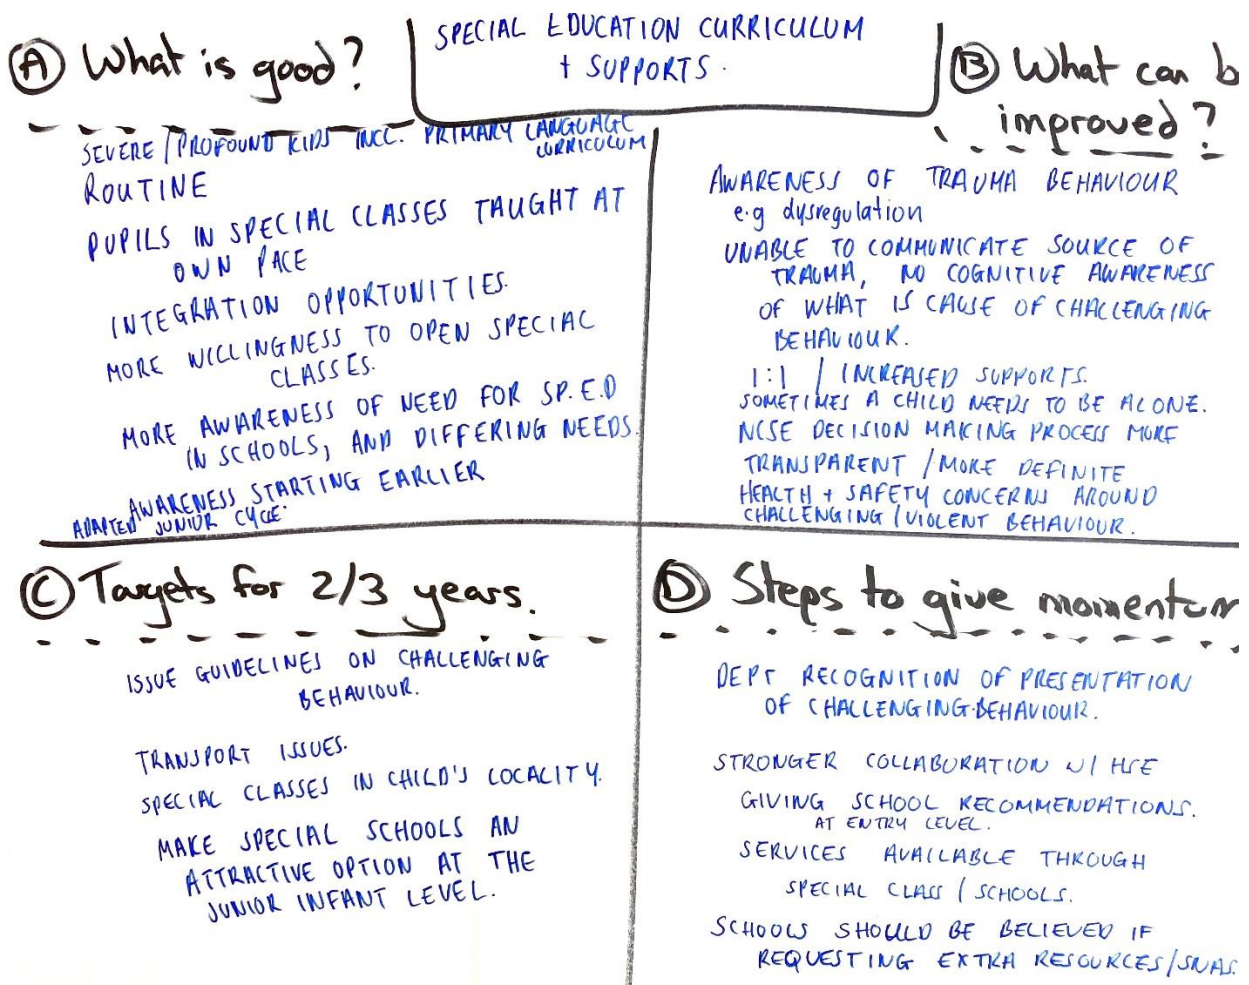 SPECIAL EDUCATION CURRICULUM
+ SUPPORTS.
(A) What is good?
SEVERE/PROFOUND KIDS INCL. PRIMARY LANGUAGE
CURRICULUM
ROUTINE
PUPILS IN SPECIAL CLASSES TAUGHT AT
OWN PACE
INTEGRATION OPPORTUNITIES.
MORE WILLINGNESS TO OPEN SPECIAL
CLASSES.
MORE AWARENESS OF NEED FOR SP.E.D
IN SCHOOLS, AND DIFFERING NEEDS.
AWARENESS STARTING EARLIER
ADAPTED JUNIOR CYCLE.
(B) What can b
improved?
AWARENESS OF TRAUMA BEHAVIOUR
e.g dysregulation
UNABLE TO COMMUNICATE SOURCE OF
TRAUMA, NO COGNITIVE AWARENESS
OF WHAT IS CAUSE OF CHALLENGING
BEHAVIOUR.
1:1 / INCREASED SUPPORTS.
SOMETIMES A CHILD NEEDS TO BE ALONE.
NCSE DECISION MAKING PROCESS MORE
TRANSPARENT / MORE DEFINITE
HEALTH + SAFETY CONCERNS AROUND
CHALLENGING/VIOLENT BEHAVIOUR.
(C) Targets for 2/3 years.
ISSUE GUIDELINES ON CHALLENGING
BEHAVIOUR.
TRANSPORT ISSUES.
SPECIAL CLASSES IN CHILD'S LOCALITY.
MAKE SPECIAL SCHOOLS AN
ATTRACTIVE OPTION AT THE
JUNIOR INFANT LEVEL.
(D) Steps to give momentum
DEPT RECOGNITION OF PRESENTATION
OF CHALLENGING BEHAVIOUR.
STRONGER COLLABORATION W/ HSE
GIVING SCHOOL RECOMMENDATIONS.
AT ENTRY LEVEL.
SERVICES AVAILABLE THROUGH
SPECIAL CLASS / SCHOOLS.
SCHOOLS SHOULD BE BELIEVED IF
REQUESTING EXTRA RESOURCES/SNAS.